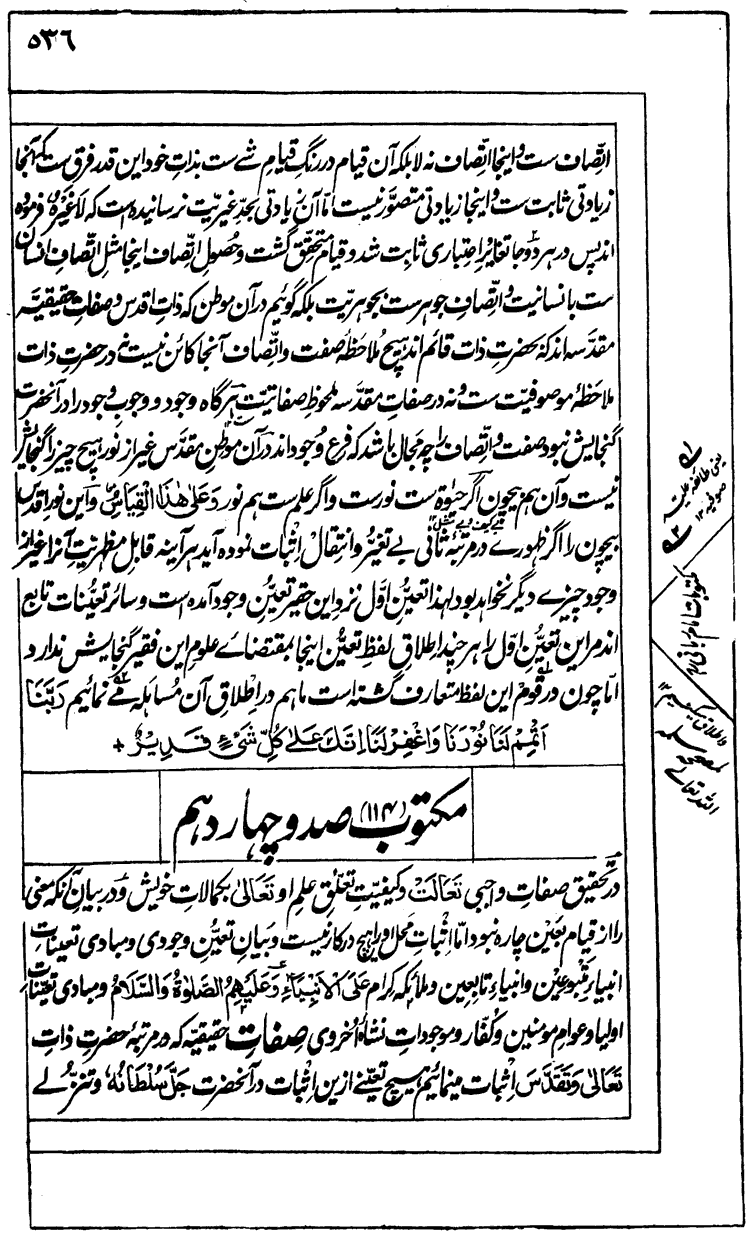 ٥٣٦
اتّصاف ست و اینجا اتّصاف نه لا بلکہ آن قیام در رنگِ قیامِ شے ست بذاتِ خود این قدر فرق ست کہ آنجا
زیادتی ثابت ست و اینجا زیادتی متصوّر نیست امّا آن زیادتی بحدِّ غیریّت نرسانیده است که لَا غَیْرُهٗ فرموده
اند پس در هر دو جا تغایرِ اعتباری ثابت شد و قیام متحقق گشت و حصولِ اتّصاف اینجا مثلِ اتّصافِ انسان
ست بانسانیت و اتّصافِ جوهر ست بجوهریت بلکه گوئیم در آن موطن که ذاتِ اقدس و صفاتِ حقیقیّه
مقدّسه اند که بحضرتِ ذات قائم اند هیچ ملاحظهٔ صفت و اتّصاف آنجا کائن نیست نه در حضرتِ ذات
ملاحظهٔ موصوفیّت ست و نه در صفاتِ مقدّسه ملحوظِ صفاتیّت هرگاه وجود و وجوبِ وجود را در آنحضرت
گنجایش نبود صفت و اتّصاف را چه مجال باشد که فرعِ وجود اند در آن موطنِ مقدّس غیر از نور هیچ چیز را گنجایش
نیست و آن هم بیچون اگر حیٰوة ست نورست و اگر علم ست هم نور وَعَلیٰ هٰذَا الْقِیَاسُ و این نورِ اقدس
بیچون را اگر ظهورے در مرتبهٔ ثانی بے تغیّر و انتقال اِثبات نموده آید هر آینه قابلِ مظهریّتِ آنرا غیر از
وجود چیزے دیگر نخواهد بود لهذا تعیّنِ اوّل نزدِ این حقیر تعیّنِ وجود آمده است و سائرِ تعیّنات تابع
اند مر این تعیّنِ اوّل را هر چند اطلاقِ لفظِ تعیّن اینجا بمقتضاے علومِ این فقیر گنجایش ندارد
امّا چون در قوم این لفظ متعارف گشته است ما هم در اطلاقِ آن مُساهله مے نمائیم رَبَّنَا
اَتْمِمْ لَنَا نُوْرَنَا وَاغْفِرْ لَنَا اِنَّكَ عَلیٰ كُلِّ شَیْءٍ قَدِیْرٌ +
مکتوب (۱۱۴) صد و چهاردهم
در تحقیقِ صفاتِ واجبی تَعَالَتْ و کیفیّتِ تعلّقِ علمِ او تَعَالیٰ بکمالاتِ خویش و در بیانِ آنکه معنی
را از قیام بعین چاره نبود امّا اِثباتِ محل او را هیچ در کار نیست و بیانِ تعیّنِ وجودی و مبادی تعیناتِ
انبیاءِ متبوعین و انبیاءِ تابعین و ملائکهٔ کرام عَلَی الْاَنْبِیَاءِ وَعَلَیْهِمُ الصَّلٰوةُ وَالسَّلَامُ و مبادی تعیّناتِ
اولیا و عوامِ مومنین و کفار و موجوداتِ نشاهٔ اُخروی صِفاتِ حقیقیّه که در مرتبهٔ حضرتِ ذات
تَعَالیٰ وَتَقَدَّسَ اِثبات مینمائیم هیچ تعیّنے ازین اِثبات در آنحضرت جَلَّ سُلْطَانُهٗ و تنزّلے
یعنی طائفه علیه
صوفیه ۱۲
مکتوبات امام ربانی
الله تعالے